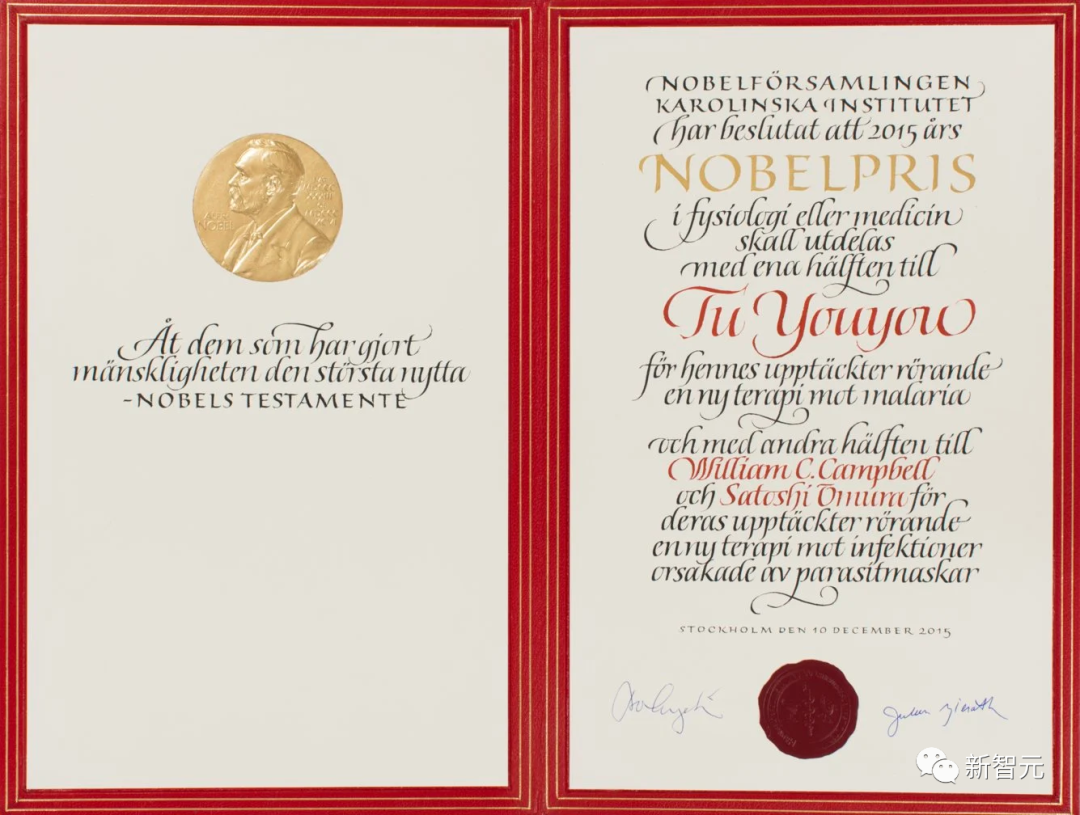 Åt dem som har gjort
mänskligheten den största nytta
-NOBELS TESTAMENTE
NOBELFÖRSAMLINGEN
KAROLINSKA INSTITUTET
har beslutat att 2015 års
NOBELPRIS
i fysiologi eller medicin
skall utdelas
med ena hälften till
Tu Youyou
för hennes upptäckter rörande
en ny terapi mot malaria
och med andra hälften till
William C. Campbell
och Satoshi Ōmura för
deras upptäckter rörande
en ny terapi mot infektioner
orsakade av parasitmaskar
STOCKHOLM DEN 10 DECEMBER 2015
新智元